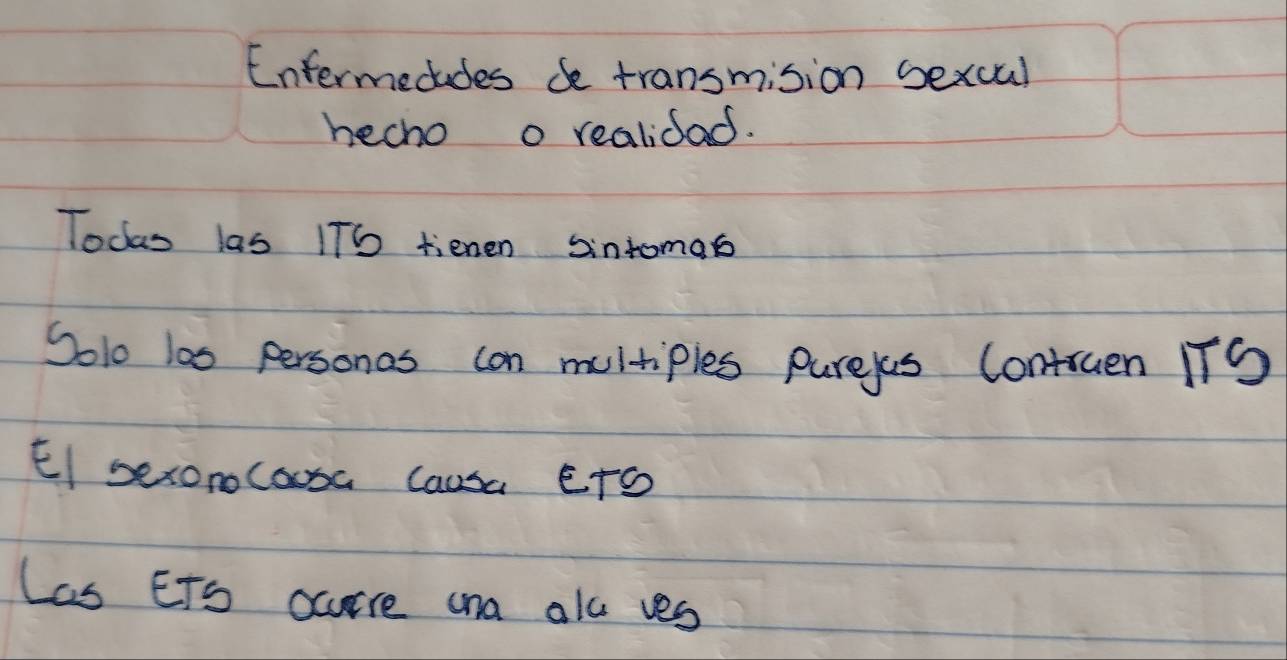 Enfermedades de transmision sexual
hecho o realidad.
Todas las ITS tienen sintomas
Solo las personas con multiples parejas contraen ITS
El sexo no causa causa ETS
Las ETS ocurre una ala ves